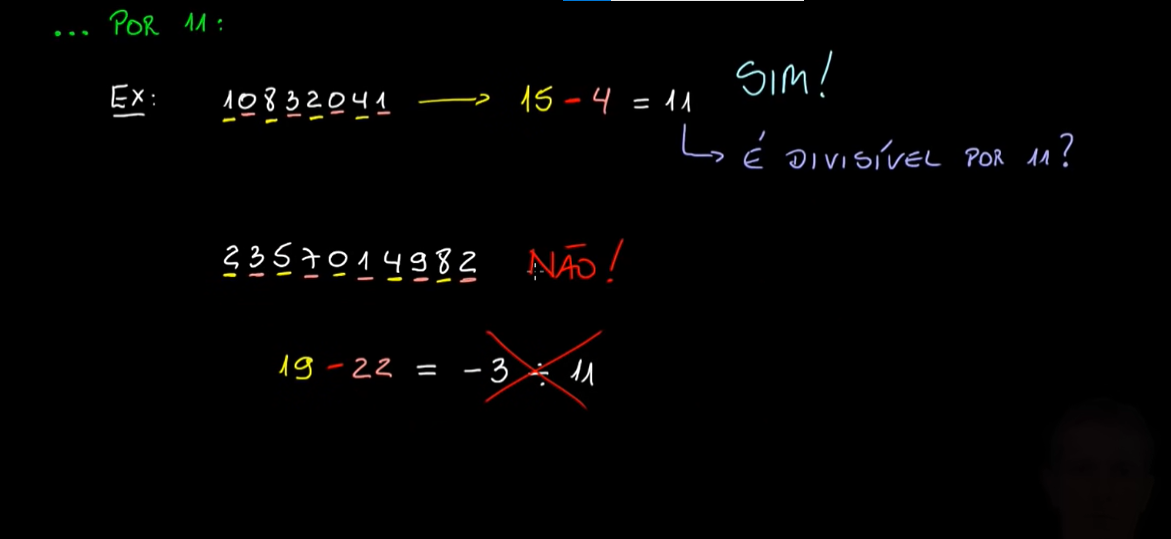 ... POR 11:
Ex: 10832041 → 15 - 4 = 11 SIM!
É DIVISÍVEL POR 11?
2357014982 NÃO!
19 - 22 = -3 ÷ 11